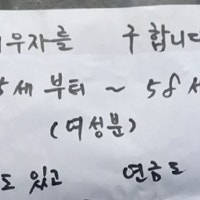 우자를 구합니다
세부터 ~ 58세
(여성분)
도 있고 연금도